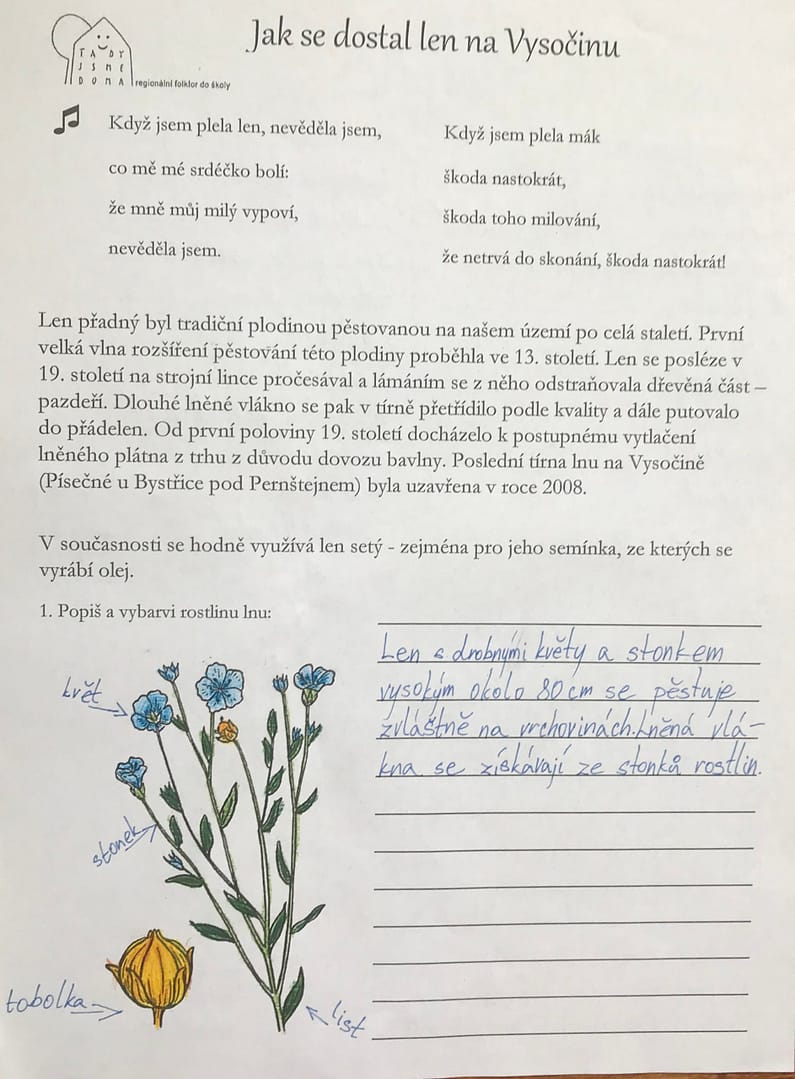 Jak se dostal len na Vysočinu
TADY
JSME
DOMA
regionální folklor do školy
Když jsem plela len, nevěděla jsem,
co mě mé srdéčko bolí:
že mně můj milý vypoví,
nevěděla jsem.
Když jsem plela mák
škoda nastokrát,
škoda toho milování,
že netrvá do skonání, škoda nastokrát!
Len přadný byl tradiční plodinou pěstovanou na našem území po celá staletí. První
velká vlna rozšíření pěstování této plodiny proběhla ve 13. století. Len se posléze v
19. století na strojní lince pročesával a lámáním se z něho odstraňovala dřevěná část –
pazdeří. Dlouhé lněné vlákno se pak v tírně přetřídilo podle kvality a dále putovalo
do přádelen. Od první poloviny 19. století docházelo k postupnému vytlačení
lněného plátna z trhu z důvodu dovozu bavlny. Poslední tírna lnu na Vysočině
(Písečné u Bystřice pod Pernštejnem) byla uzavřena v roce 2008.
V současnosti se hodně využívá len setý - zejména pro jeho semínka, ze kterých se
vyrábí olej.
1. Popiš a vybarvi rostlinu lnu:
Len s drobnými květy a stonkem
vysokým okolo 80 cm se pěstuje
zvláštně na vrchovinách. Lněná vlá-
kna se získávají ze stonků rostlin.
květ
stonek
tobolka
list